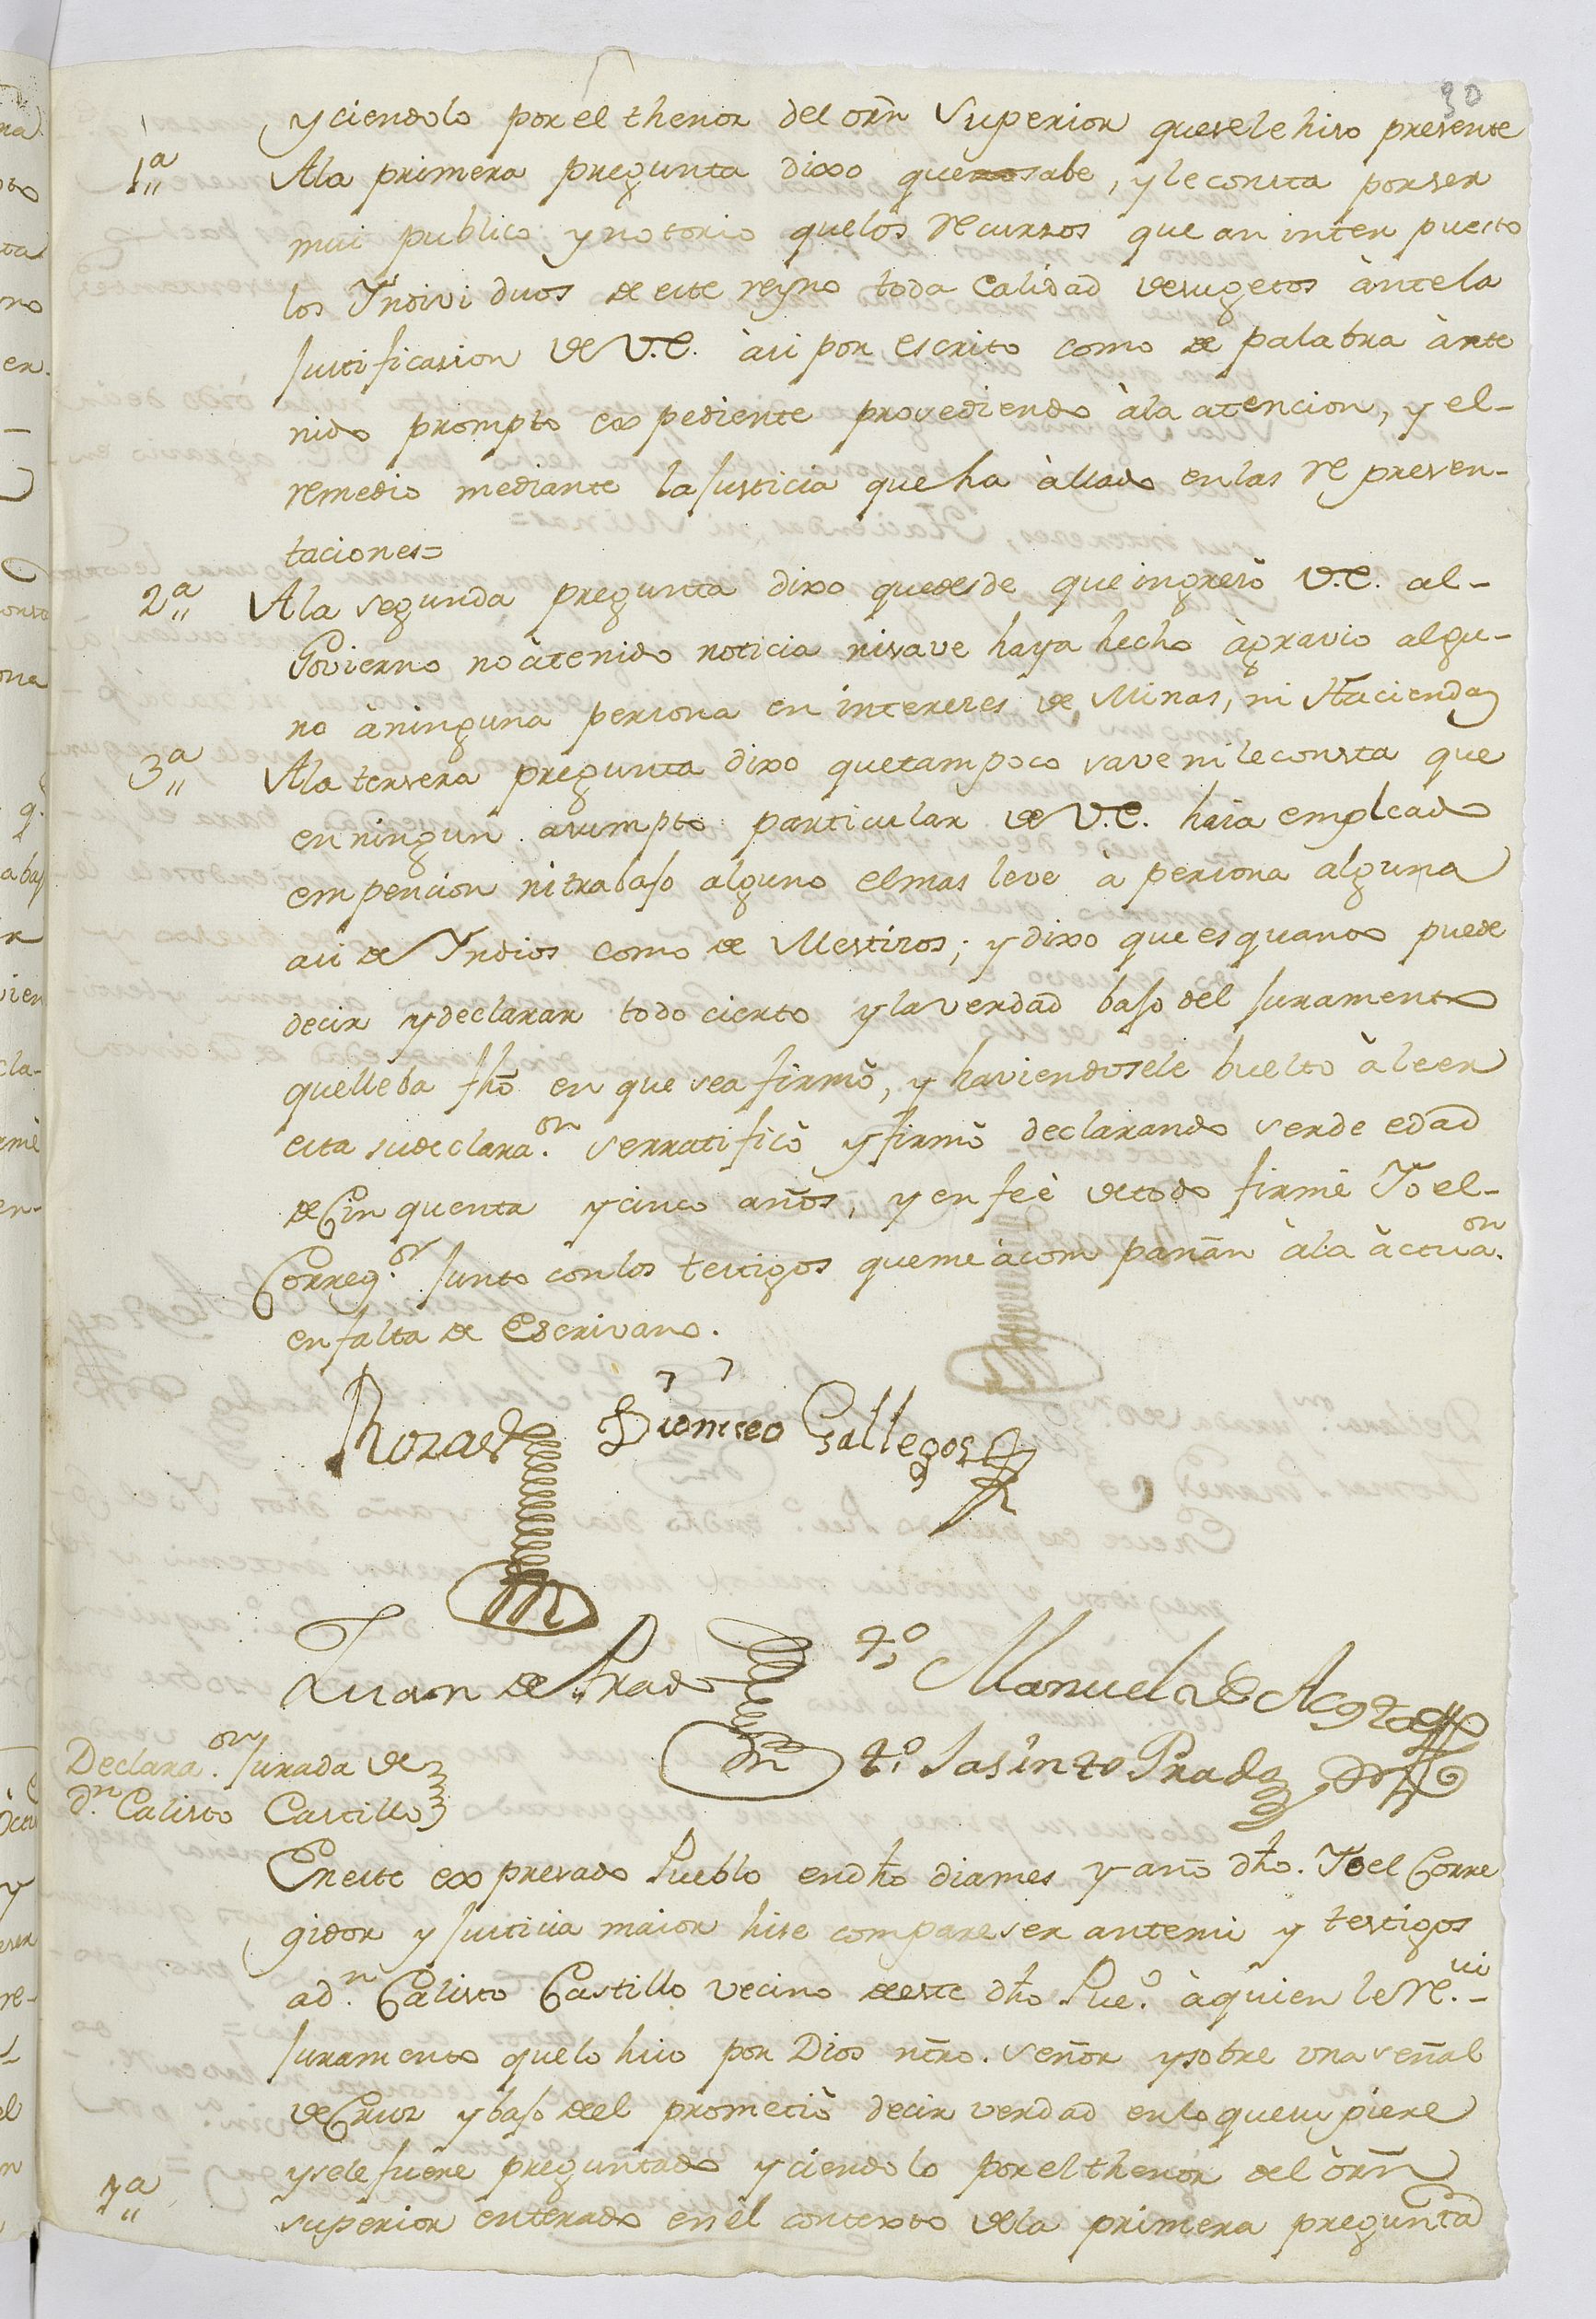 90
yciendolo por el thenor del orñ Superior quesele hiso presente
1ª Ala primera pregunta dixo que sabe, yle consta por ser
mui publico ynotorio quelos recursos que an inter puesto
los Yndivi duos de este reyno toda Calidad desugetos àntela
Justificasion de V.E. àsi por escrito como de palabra àrte
nido prompto expediente provediendo àla atencion, y el-
remedio mediante laJusticia queha àllado enlas represen-
taciones=
2ª Ala segunda pregunta dixo quedesde que ingresò V.E. al-
Govierno noàtenido noticia nisave haya hecho àgravio algu-
no àninguna persona en intereses de Minas, ni Haciendas
3ª Ala tersera pregunta dixo quetampoco save nileconsta que
enningun asumpto particular de V.E. haia empleado
empencion nitrabajo alguno elmas leve à persona alguna
asi de Yndios como de Mestizos; y dixo que es quanto puede
decir ydeclarar todo cierto ylaverdad bajo del Juramento
quelleba fho en que sea firmò, y haviendosele buelto àleer
esta sudeclara.on serratificò yfirmò declarando serde edad
deCinquenta ycinco años, y en feè detodo firmè Yo el-
Correg.or Junto conlos testigos queme àcom pañan àla àctua.on
enfalta de Escrivano.
Rozas Dionicio Gallegos
Juan de Prado tº Manuel de Acosta
tº Jasinto Prado
Declara.on Jurada de
d.n Calisto Castillo
Eneste expresado Pueblo endho diames y año dho. Yoel Corre
gidor y Justicia maior hise compareser antemi y testigos
ad.n Calisto Castillo vecino deeste dho Pue.o àquien le Re.ui-
Juramento quelo hiso por Dios ntro. señor ysobre una señal
deCruz ybajo deel prometiò decir verdad enlo quesupiere
ysele fuere preguntado yciendolo por el thenor del òrñ
1ª superior enterado en èl contexto dela primera pregunta